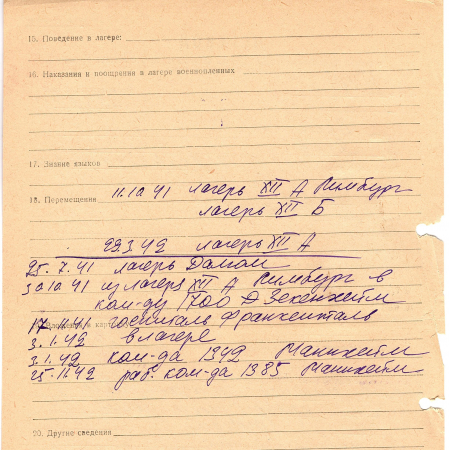 15. Поведение в лагере:
16. Наказания и поощрения в лагере военнопленных
17. Знание языков
11.10 41 лагерь XII А Лимбург
18. Перемещения
лагерь XII Б
22 3 42 лагерь XII А
25. 7. 41 лагерь
30 10 41 из лагеря XII А Лимбург в
ком-ду 1700 Д Зекенхейм
17. 11 41 госпиталь Франкенталь
3. 1. 42 в лагере
3. 1. 42 ком-да 1342 Маннхейм
25. 11. 42 раб. ком-да 1385 Маннхейм
20. Другие сведения